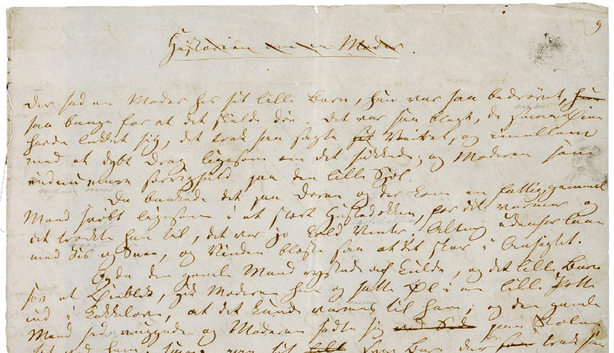 9
Historien om en Moder.
Der sad en Moder hos sit lille Barn, hun var saa bedrøvet, hun
saa bange for at det skulde døe. det var saa blegt, de smaa Øine
havde lukket sig, det trak saa sagte sit Veiret, og imellem
med et dybt Drag ligesom om det sukkede; og Moderen saae
endnu mere sørgelig paa den lille Sjæl.
Da bankede det paa Døren og der kom en fattig gammel
Mand svøbt ligesom i et stort Hestedækken, for det varmer og
det trængte han til, det var jo kold Vinter; Alting udenfor laae
med Iis og Snee, og Vinden blæste saa at det skar i Ansigtet.
Og da den gamle Mand rystede af Kulde, og det lille Barn
sov et Øieblik, gik Moderen hen og satte Øl i en lille Potte
ind i Kakkelovnen, at det kunde varmes til ham; og den gamle
Mand sad og vuggede og Moderen satte sig paa Stolen